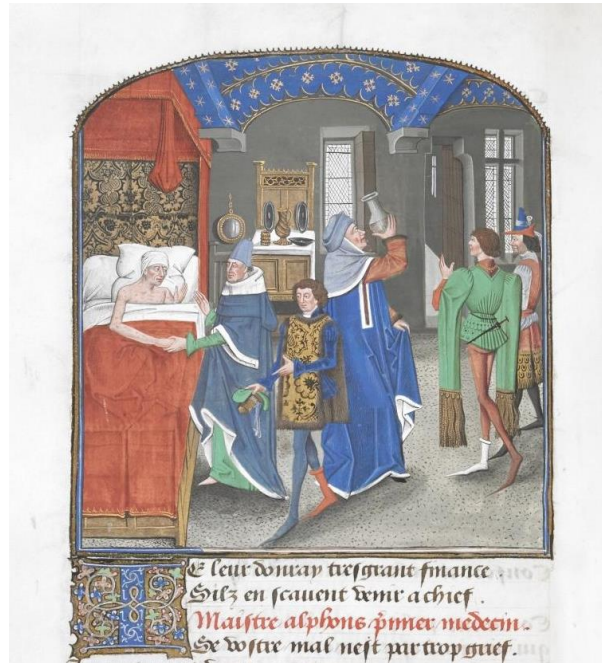 E leur donray tresgrant finance.
Silz en scauent venir a chief.
Maistre alphons p̄mier medecin.
Se vostre mal nest par trop grief.